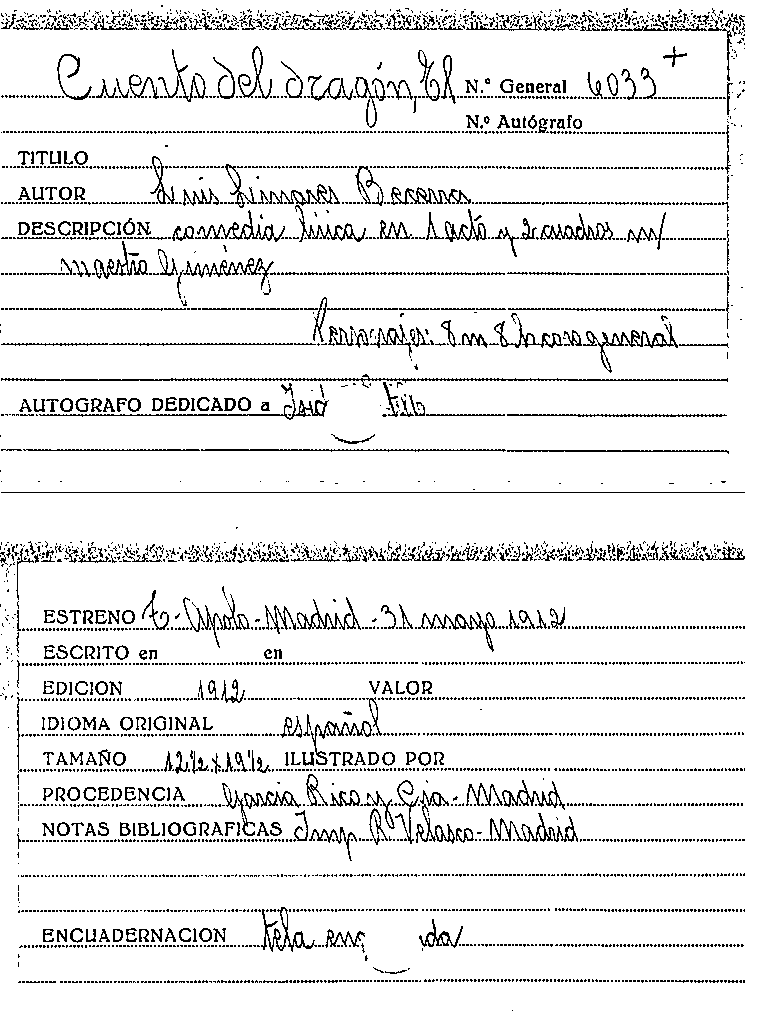 Cuento del dragón, El N.º General 6033 +
N.º Autógrafo
TITULO
AUTOR Luis Linares Becerra
DESCRIPCIÓN comedia lírica en 1 acto y 2 cuadros m/
maestro Giménez
Personajes: 8 m 8 h coro general
AUTOGRAFO DEDICADO a
ESTRENO T-Apolo-Madrid-31 mayo 1912
ESCRITO en en
EDICION 1912 VALOR
IDIOMA ORIGINAL español
TAMAÑO 12½ x 19½ ILUSTRADO POR
PROCEDENCIA García Rico y Cía-Madrid
NOTAS BIBLIOGRAFICAS Imp R Velasco-Madrid
ENCUADERNACION tela